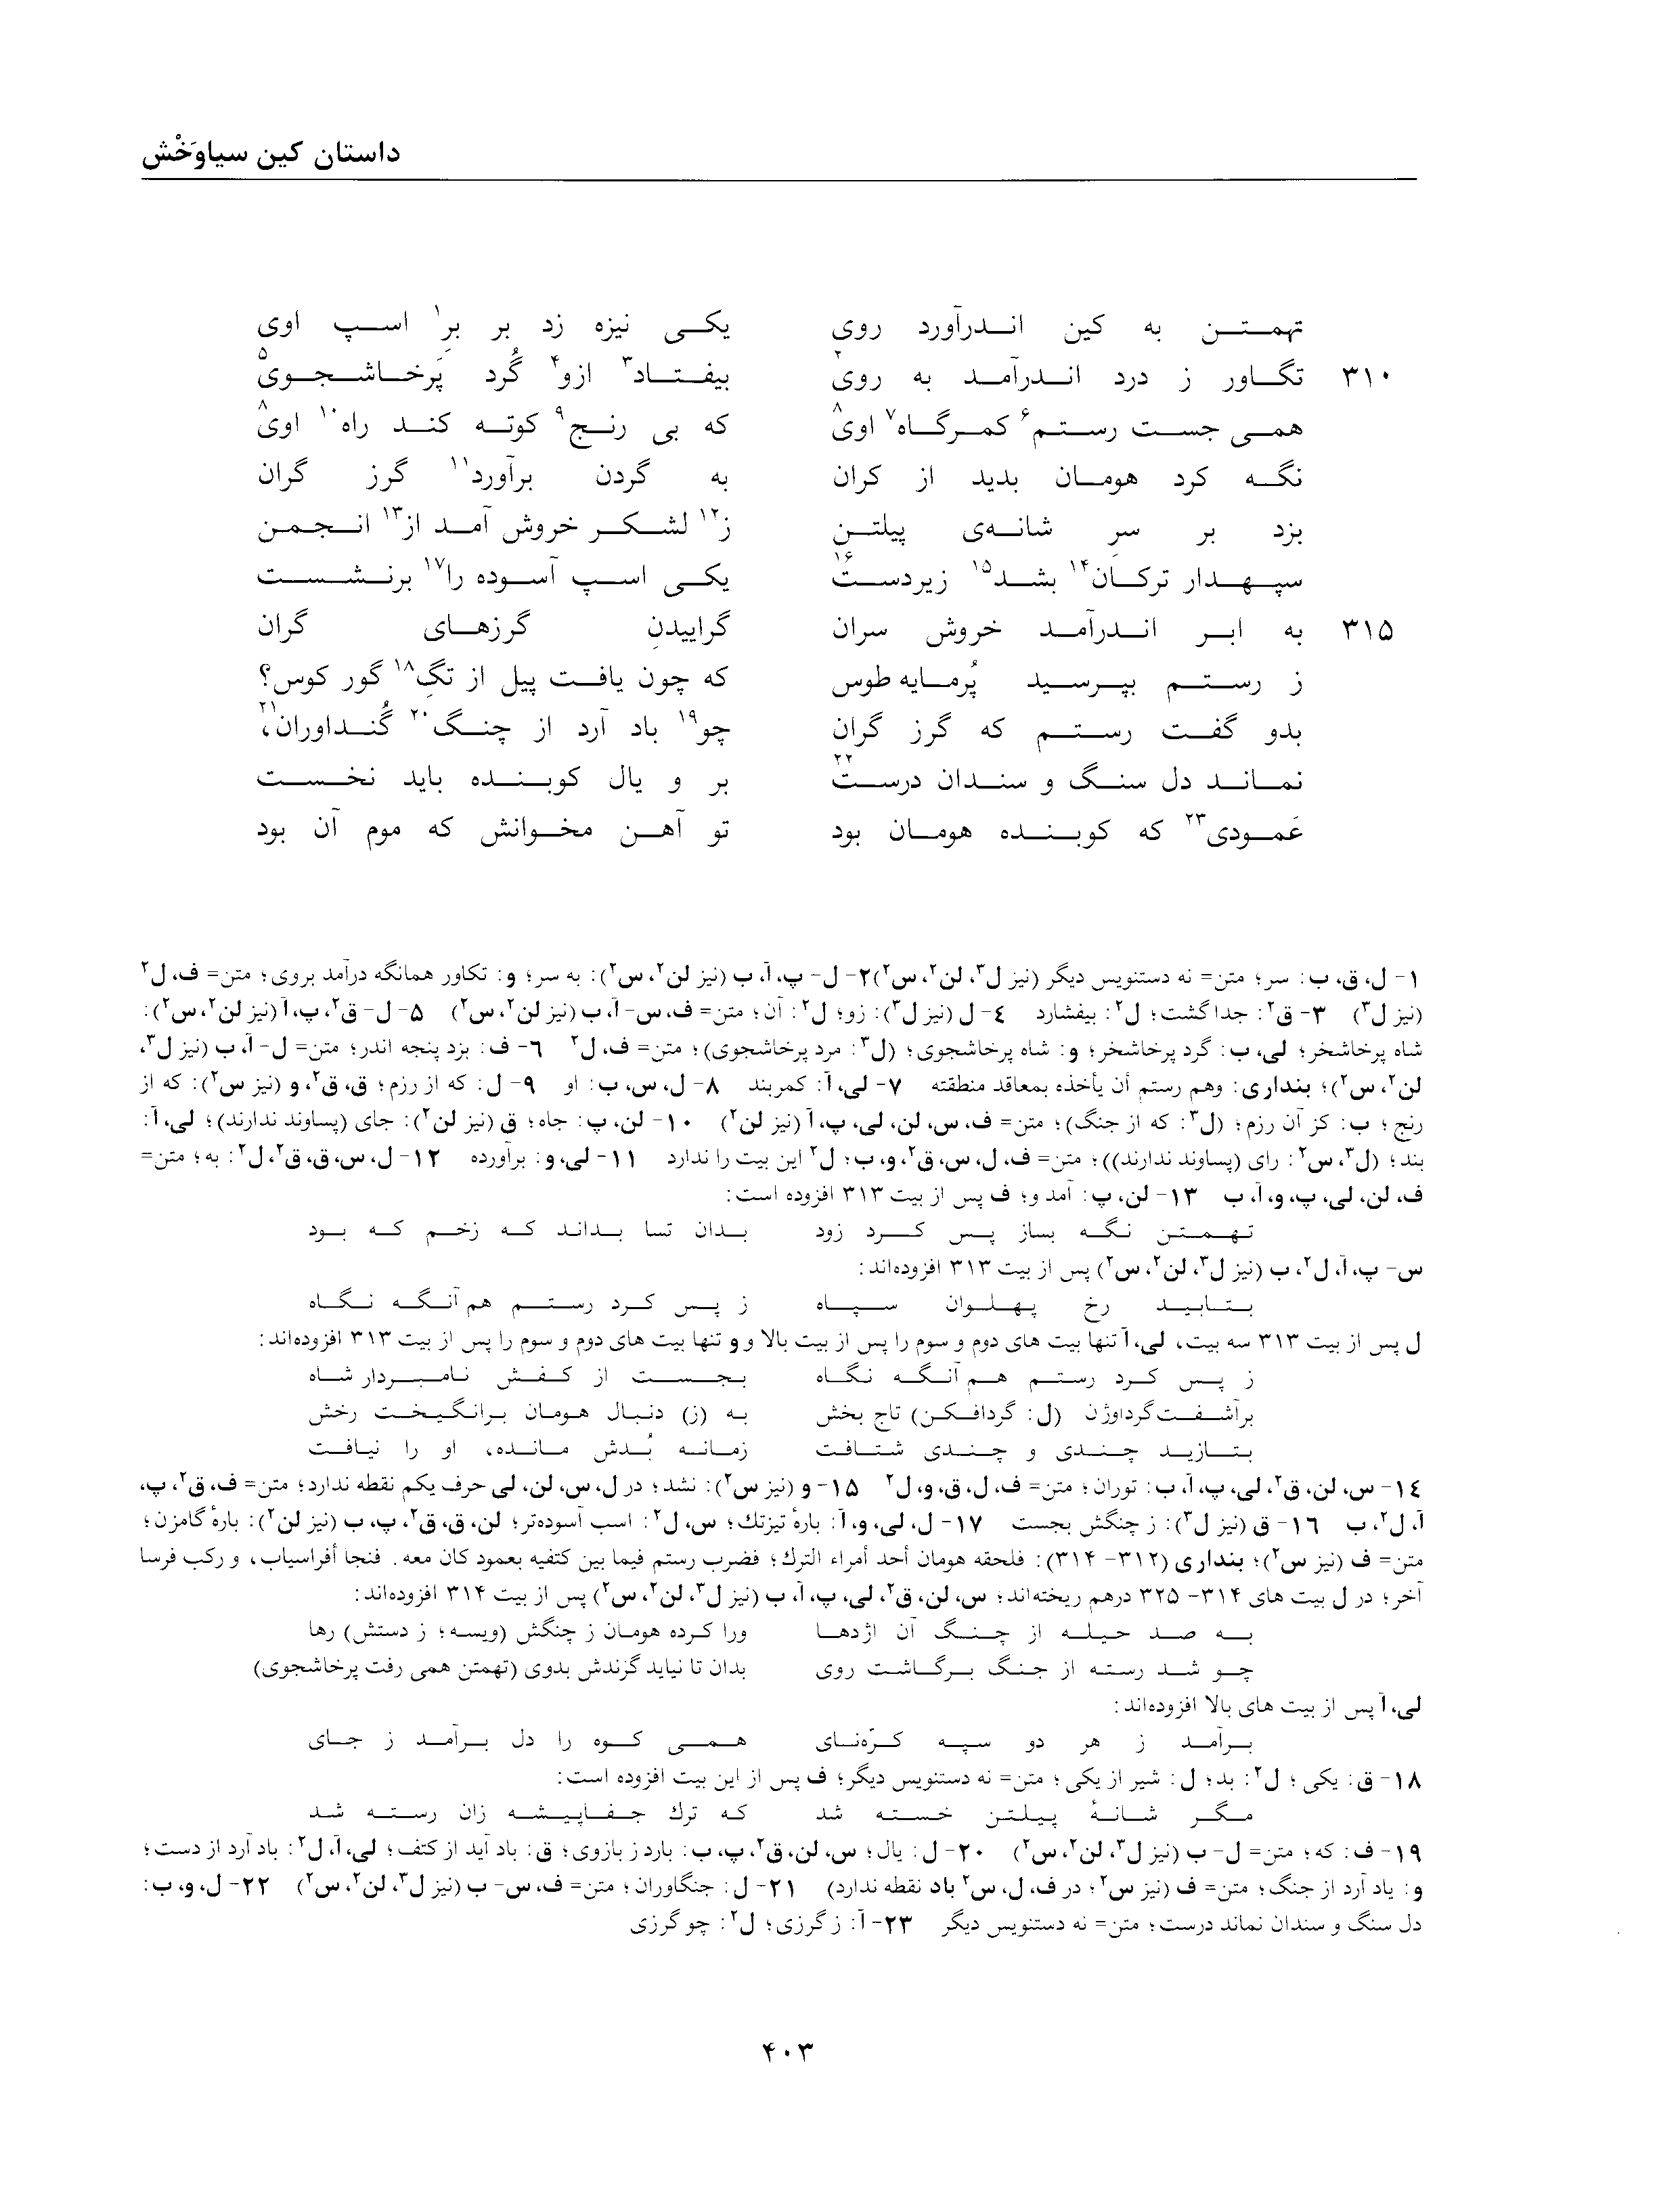 داستان کین سیاوَخْش
تهمتن به کین اندرآورد روی یکی نیزه زد بر برِ۱ اسپ اوی
۳۱۰ تگاور ز درد اندرآمد به روی۲ بیفتاد۳ ازو۴ گُرد پَرخاشجوی۵
همی جست رستم۶ کمرگاه۷ اوی۸ که بی رنج۹ کوته کند راه۱۰ اوی۸
نگه کرد هومان بدید از کران به گردن برآورد۱۱ گرز گران
بزد بر سرِ شانه‌ی پیلتن ز۱۲ لشکر خروش آمد از۱۳ انجمن
سپهدار ترکان۱۴ بشد۱۵ زیردست۱۶ یکی اسپ آسوده را۱۷ برنشست
۳۱۵ به ابر اندرآمد خروش سران گراییدنِ گرزهای گران
ز رستم بپرسید پُرمایه طوس که چون یافت پیل از تگِ۱۸ گور کوس؟
بدو گفت رستم که گرز گران چو۱۹ باد آرد از چنگ۲۰ گُنداوران،۲۱
نماند دل سنگ و سندان درست۲۲ بر و یال کوبنده باید نخست
عَمودی۲۳ که کوبنده هومان بود تو آهن مخوانش که موم آن بود
۱- ل، ق، ب: سر؛ متن= نه دستنویس دیگر (نیز ل۳، لن۲، س۲) ۲- ل- پ، آ، ب (نیز لن۲، س۲): به سر؛ و: تکاور همانگه درآمد بروی؛ متن= ف، ل۲
(نیز ل۳) ۳- ق۲: جداگشت؛ ل۲: بیفشارد ۴- ل (نیز ل۳): زو؛ ل۲: آن؛ متن= ف، س- آ، ب (نیز لن۲، س۲) ۵- ل- ق۲، پ، آ (نیز لن۲، س۲):
شاه پرخاشخر؛ لی، ب: گرد پرخاشخر؛ و: شاه پرخاشجوی؛ (ل۳: مرد پرخاشجوی)؛ متن= ف، ل۲ ۶- ف: بزد پنجه اندر؛ متن= ل- آ، ب (نیز ل۳،
لن۲، س۲)؛ بنداری: وهم رستم أن یأخذه بمعاقد منطقته ۷- لی، آ: کمربند ۸- ل، س، ب: او ۹- ل: که از رزم؛ ق، ق۲، و (نیز س۲): که از
رنج؛ ب: کز آن رزم؛ (ل۳: که از جنگ)؛ متن= ف، س، لن، لی، پ، آ (نیز لن۲) ۱۰- لن، پ: جاه؛ ق (نیز لن۲): جای (پساوند ندارند)؛ لی، آ:
بند؛ (ل۳، س۲: رای (پساوند ندارند))؛ متن= ف، ل، س، ق۲، و، ب؛ ل۲ این بیت را ندارد ۱۱- لی، و: برآورده ۱۲- ل، س، ق، ق۲، ل۲: به؛ متن=
ف، لن، لی، پ، و، آ، ب ۱۳- لن، پ: آمد و؛ ف پس از بیت ۳۱۳ افزوده است:
تهمتن نگه بساز پس کرد زود بدان تسا بداند که زخم که بود
س- پ، آ، ل۲، ب (نیز ل۳، لن۲، س۲) پس از بیت ۳۱۳ افزوده‌اند:
بتابید رخ پهلوان سپاه ز پس کرد رستم هم آنگه نگاه
ل پس از بیت ۳۱۳ سه بیت، لی، آ تنها بیت های دوم و سوم را پس از بیت بالا و و تنها بیت های دوم و سوم را پس از بیت ۳۱۳ افزوده‌اند:
ز پس کرد رستم هم آنگه نگاه بجست از کفش نامبردار شاه
برآشفت گرداوژن (ل: گردافکن) تاج بخش به (ز) دنبال هومان برانگیخت رخش
بتازید چندی و چندی شتافت زمانه بُدش مانده، او را نیافت
۱۴- س، لن، ق۲، لی، پ، آ، ب: توران؛ متن= ف، ل، ق، و، ل۲ ۱۵- و (نیز س۲): نشد؛ در ل، س، لن، لی حرف یکم نقطه ندارد؛ متن= ف، ق۲، پ،
آ، ل۲، ب ۱۶- ق (نیز ل۳): ز چنگش بجست ۱۷- ل، لی، و، آ: بارهٔ تیزتك؛ س، ل۲: اسب آسوده‌تر؛ لن، ق، ق۲، پ، ب (نیز لن۲): بارهٔ گامزن؛
متن= ف (نیز س۲)؛ بنداری (۳۱۲- ۳۱۴): فلحقه هومان أحد أمراء الترك؛ فضرب رستم فیما بین کتفیه بعمود کان معه. فنجا أفراسیاب، و رکب فرسا
آخر؛ در ل بیت های ۳۱۴- ۳۲۵ درهم ریخته‌اند؛ س، لن، ق۲، لی، پ، آ، ب (نیز ل۳، لن۲، س۲) پس از بیت ۳۱۴ افزوده‌اند:
به صد حیله از چنگ آن اژدها ورا کرده هومان ز چنگش (ویسه؛ ز دستش) رها
چو شد رسته از جنگ برگاشت روی بدان تا نیاید گزندش بدوی (تهمتن همی رفت پرخاشجوی)
لی، آ پس از بیت های بالا افزوده‌اند:
برآمد ز هر دو سپه کرّنای همی کوه را دل برآمد ز جای
۱۸- ق: یکی؛ ل۲: بد؛ ل: شیر از یکی؛ متن= نه دستنویس دیگر؛ ف پس از این بیت افزوده است:
مگر شانهٔ پیلتن خسته شد که ترك جفاپیشه زان رسته شد
۱۹- ف: که؛ متن= ل- ب (نیز ل۳، لن۲، س۲) ۲۰- ل: یال؛ س، لن، ق۲، پ، ب: بارد ز بازوی؛ ق: باد آید از کتف؛ لی، آ، ل۲: باد آرد از دست؛
و: یاد آرد از جنگ؛ متن= ف (نیز س۲؛ در ف، ل، س۲ باد نقطه ندارد) ۲۱- ل: جنگاوران؛ متن= ف، س- ب (نیز ل۳، لن۲، س۲) ۲۲- ل، و، ب:
دل سنگ و سندان نماند درست؛ متن= نه دستنویس دیگر ۲۳- آ: ز گرزی؛ ل۲: چو گرزی
۴۰۳